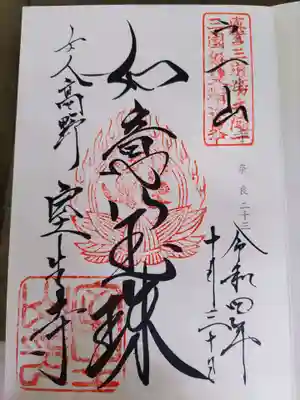 宀一山
奈良二十三
令和四年
十月三十日
如意宝珠
女人高野
室生寺